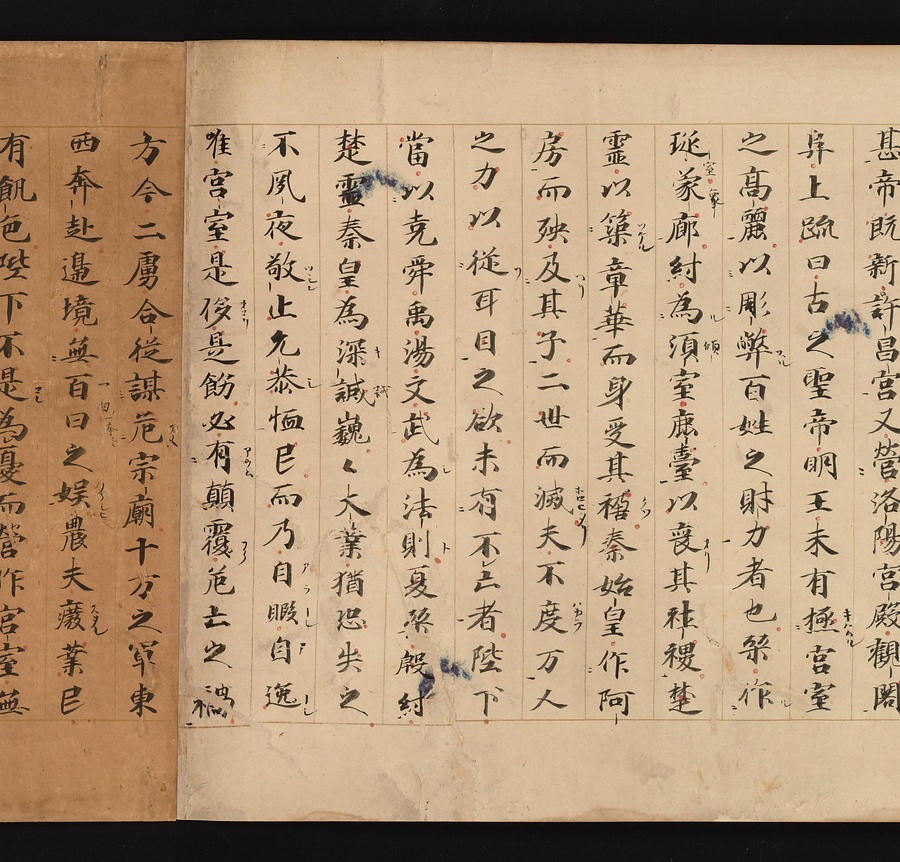 甚帝既新許昌宮又營洛陽宮殿觀閣
阜上疏曰古之聖帝明王未有極宮室
之高麗以彫弊百姓之財力者也桀作
琁室象廊紂為傾宮鹿臺以喪其社稷楚
靈以築章華而身受其禍秦始皇作阿
房而殃及其子二世而滅夫不度万人
之力以從耳目之欲未有不亡者陛下
當以堯舜禹湯文武為法則夏桀殷紂
楚靈秦皇為深誡巍々大業猶恐失之
不夙夜敬止允恭恤民而乃自暇自逸
唯宮室是侈是飾必有顛覆危亡之禍
方今二虜合從謀危宗廟十万之軍東
西奔赴邊境無百日之娯農夫癈業民
有飢色陛下不是為憂而營作宮室無